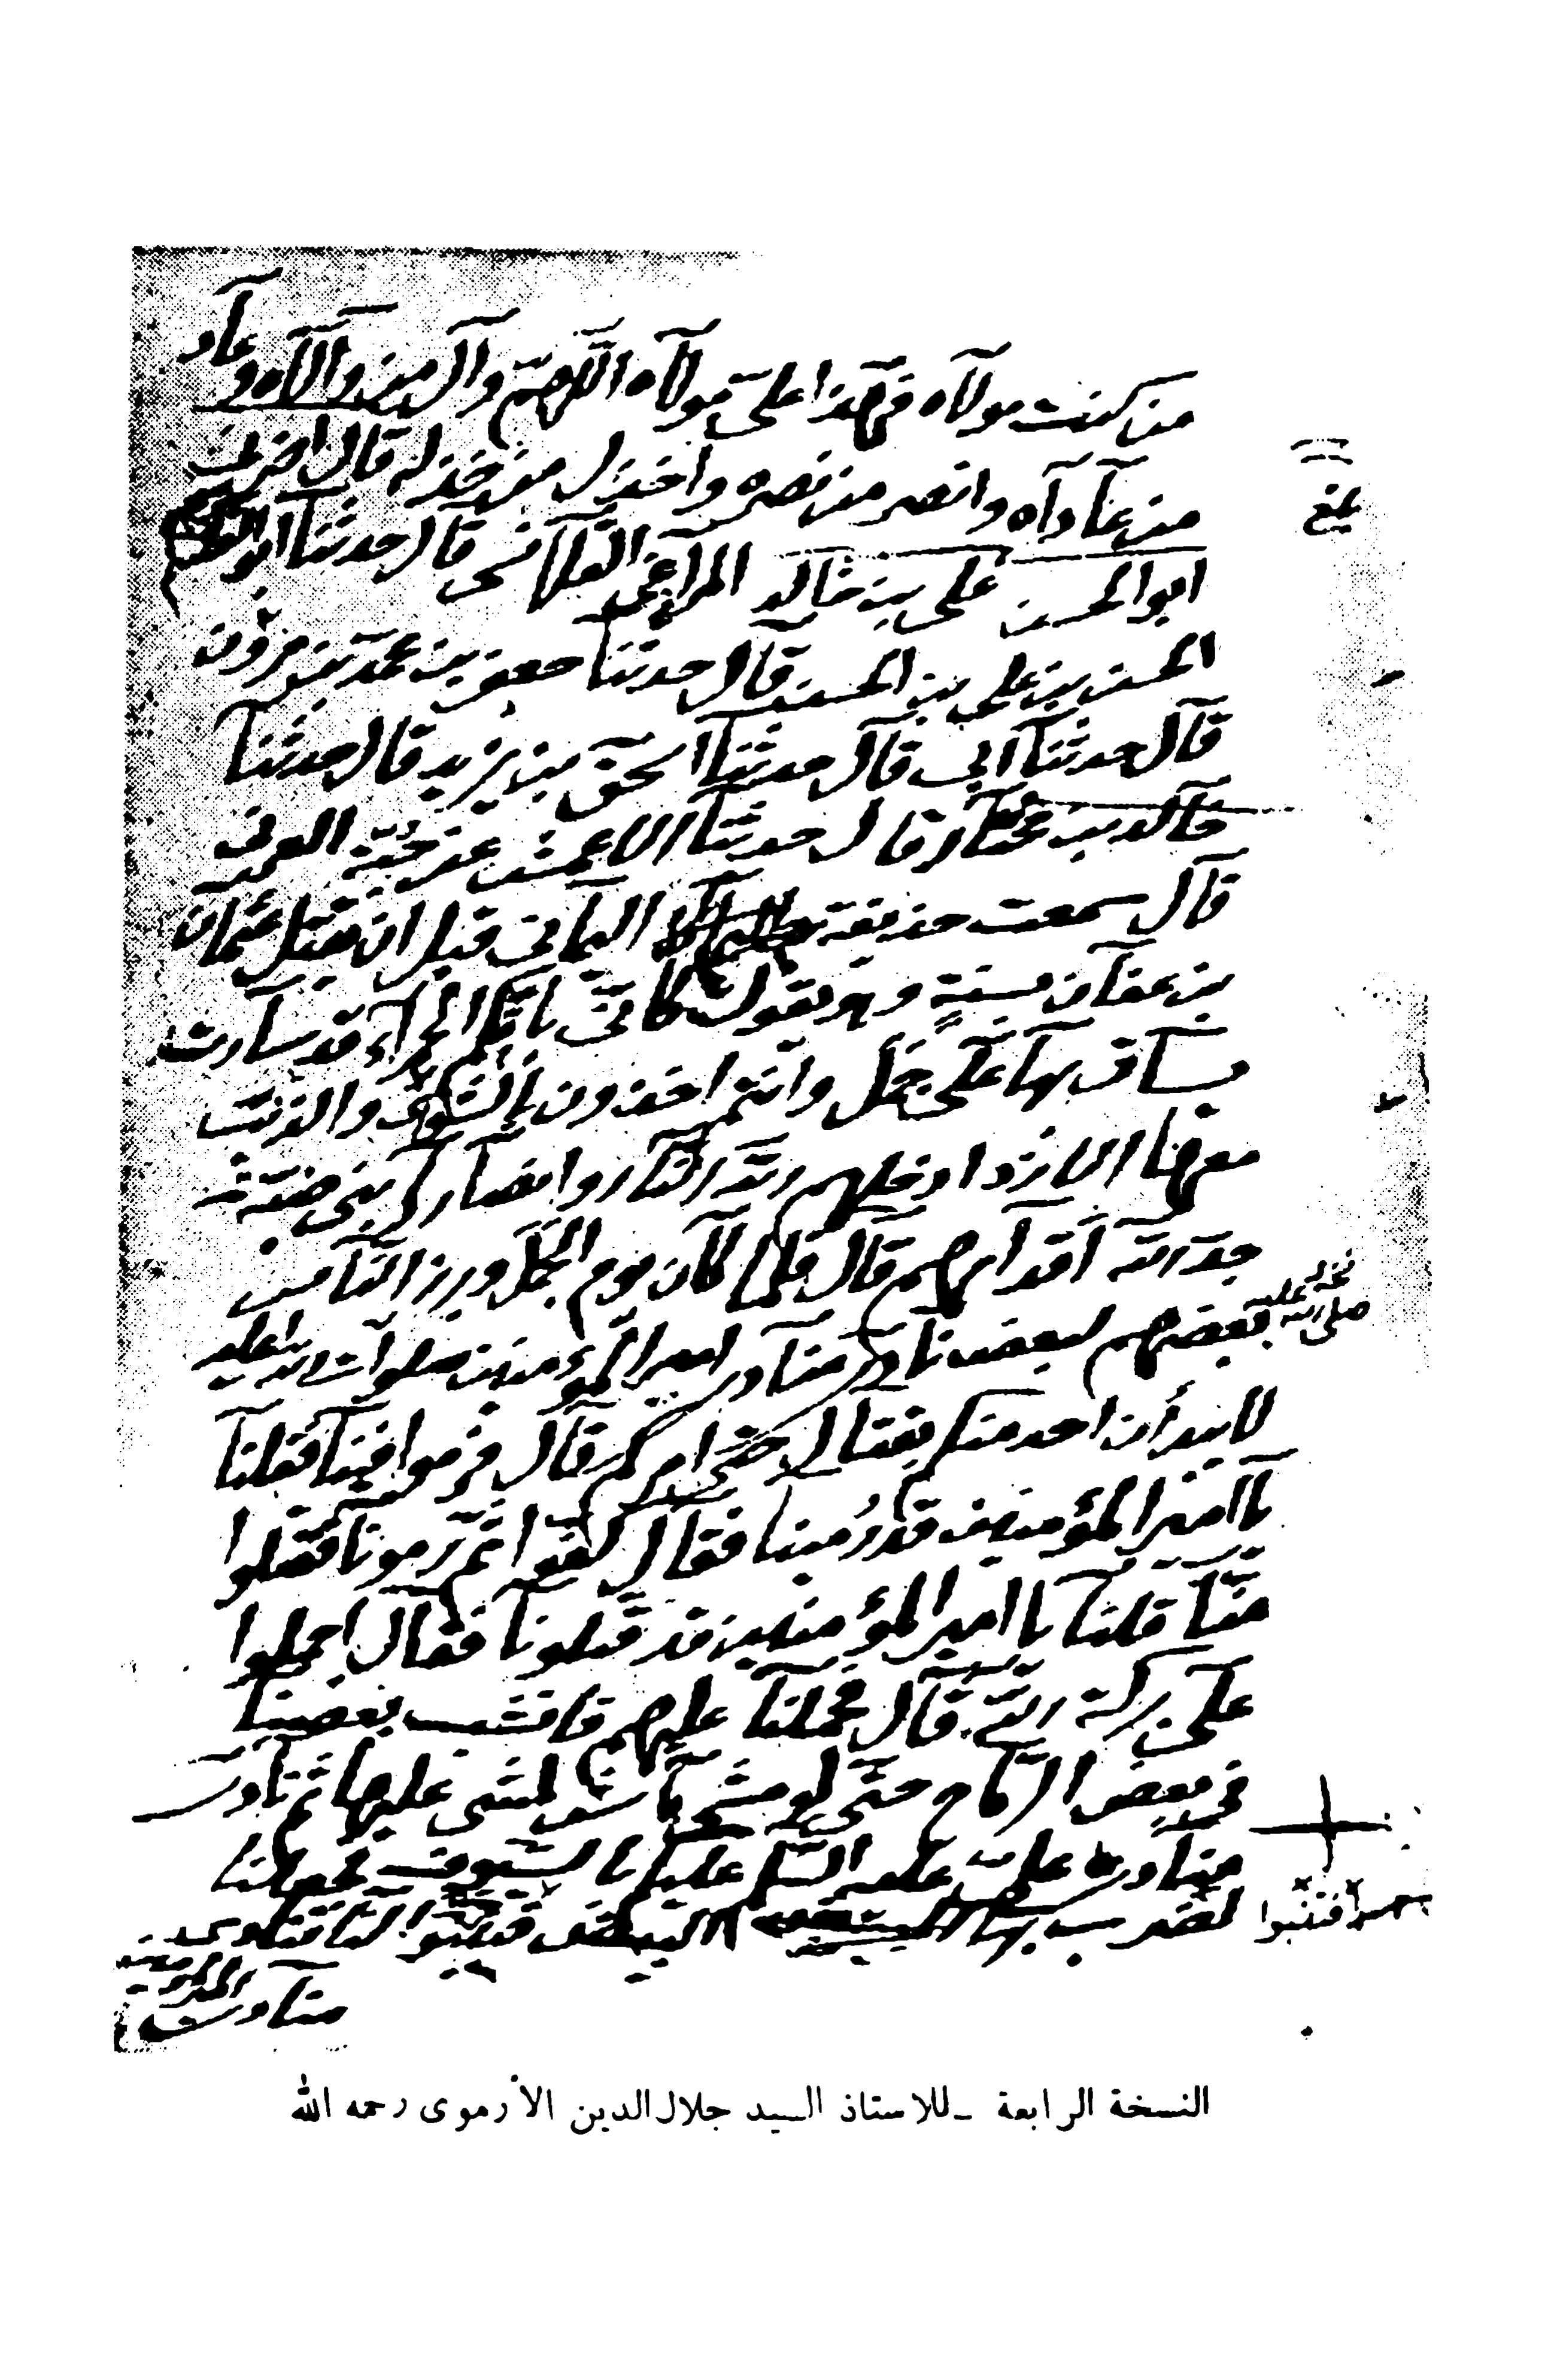 من كنت مولاه فهذا علىّ مولاه اللهمّ وال من والاه وعاد
من عاداه وانصر من نصره واخذل من خذله قال اخبرنى
بلغ
ابو الحسن على بن خالد المراغى القلانسى قال حدثنا ابو القسم
الحسن بن على بن الحسن قال حدثنا جعفر بن محمد بن مروان
قال حدثنا ابى قال حدثنا اسحق بن يزيد قال حدثنا
خالد بن مختار قال حدثنا الاعمش عن حبّة العرنى
قال سمعت حذيفة اليمانى قبل ان يقتل عثمان
بن عفان بسنةٍ وهو يقول كانّى بامّكم الحمراء قد سارت
يساق بها على جمل وانتم اخذون بالشوى والذنب
معها الازد ادخلهم الله النار وانصارها بنى ضبّة
جدّ الله اقدامهم قال فلما كان يوم الجمل وبرز الناس
بعضهم لبعض نادى منادى امير المؤمنين صلوات الله عليه
صلى الله عليه
لا يبدأن احد منكم بقتال حتى امركم قال فرموا فينا فقلنا
يا امير المؤمنين قد رُمينا فقال كفوا ثم رمونا فقتلوا
منّا قلنا يا امير المؤمنين قد قتلونا فقال احملوا
على بركة الله قال فحملنا عليهم فانشب بعضنا
فى بعض الرماح حتى لو مشى ماش لمشى عليها ثم نادى
منادى على عليه السلم عليكم بالسيوف فجعلنا
نضرب بها البيض فتنبوا لنا فنادى
منادى امير المؤمنين
النسخة الرابعة ـ للاستاذ السيد جلال الدين الأرموى رحمه الله